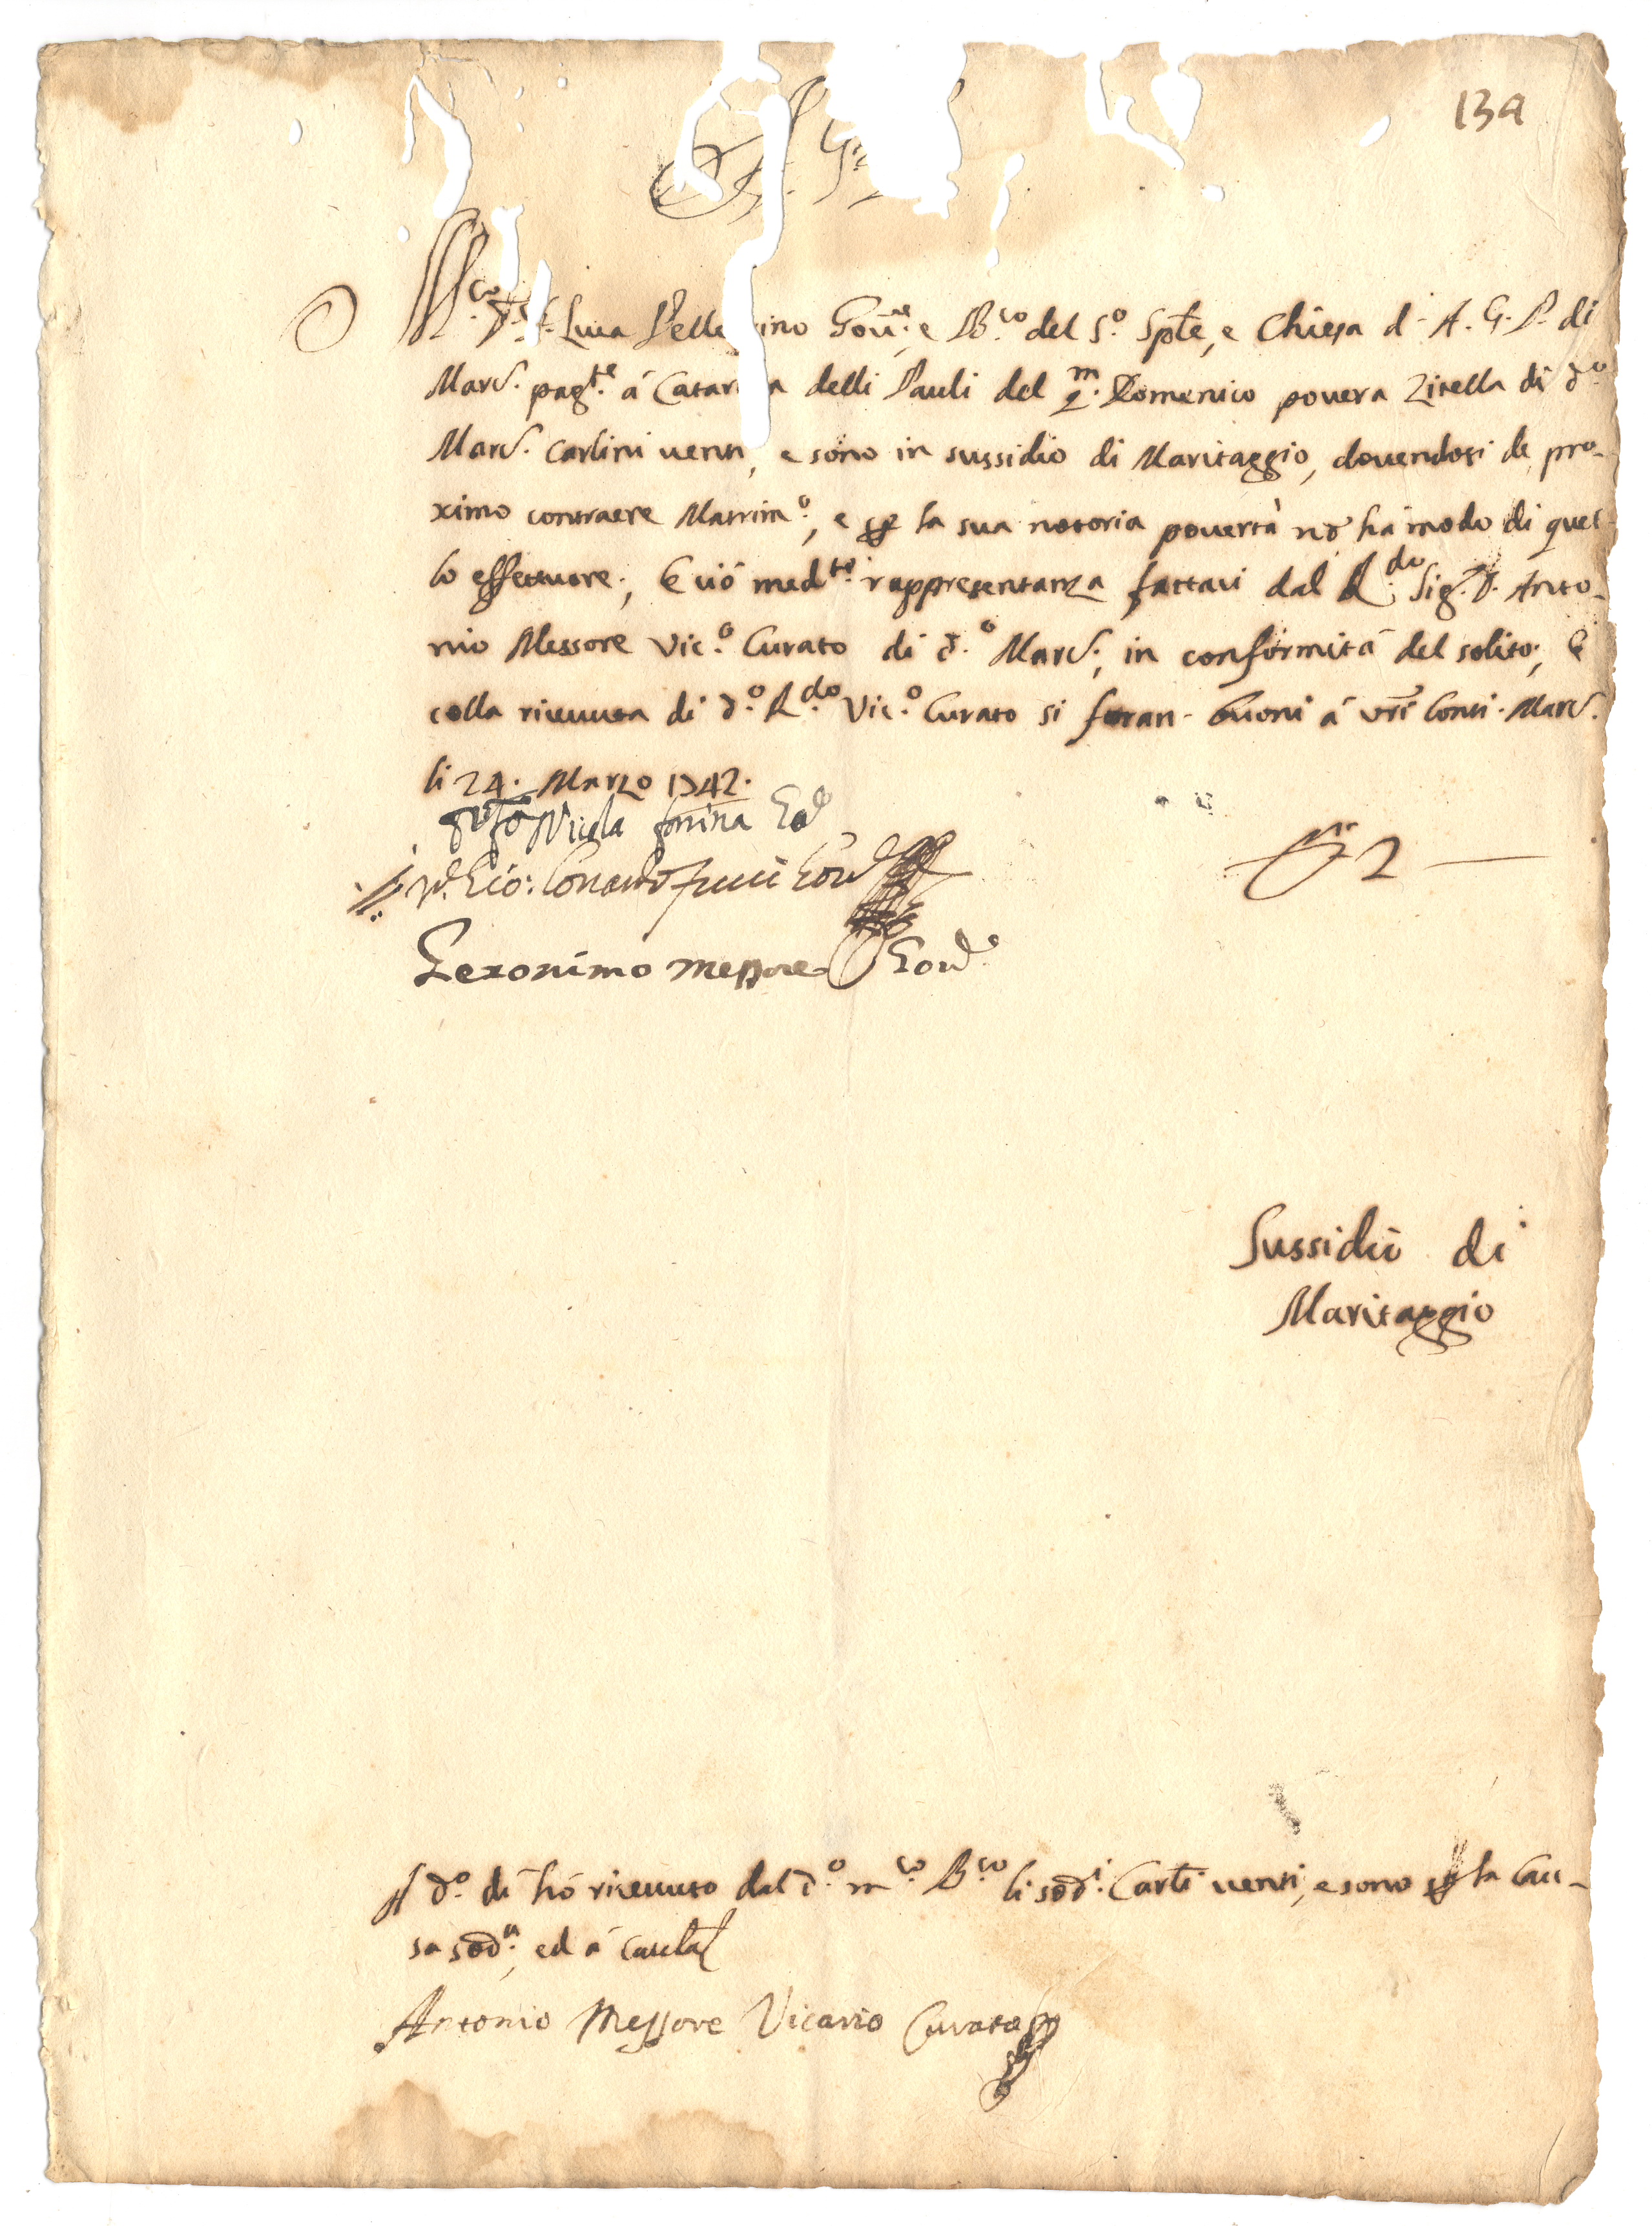 134
A. G.
M.co D. Luca Pelle ino Gov.re, e B.co del S.o Spłe, e Chiesa d. A. G. P. di
Marc. pag.te á Catar a delli Pauli del q.m Domenico povera Zitella di d.o
Marc. Carlini venti, e sono in sussidio di Maritaggio, dovendosi de pro-
ximo contraere Matrim.o, e per la sua notoria povertà nō há modo di quel-
lo effettuare; E ció med.te rappresentanza fattavi dal R.do Sig. D. Anto-
nio Messore Vic.o Curato di d.o Marc., in conformitá del solito; E
colla ricevuta di d.o R.do Vic.o Curato si faran- buoni á vrī Conti. Marc.
li 24. Marzo 1742.
Nicola Ed
Gio: Gov
Geronimo Messore Gov.e
2 —
Sussidio di
Maritaggio
A d.o di hó ricevuto dal d.o m.co B.co li sod.i Carłi venti, e sono per la Cau-
sa sod.a, ed á cautela
Antonio Messore Vicario Curato